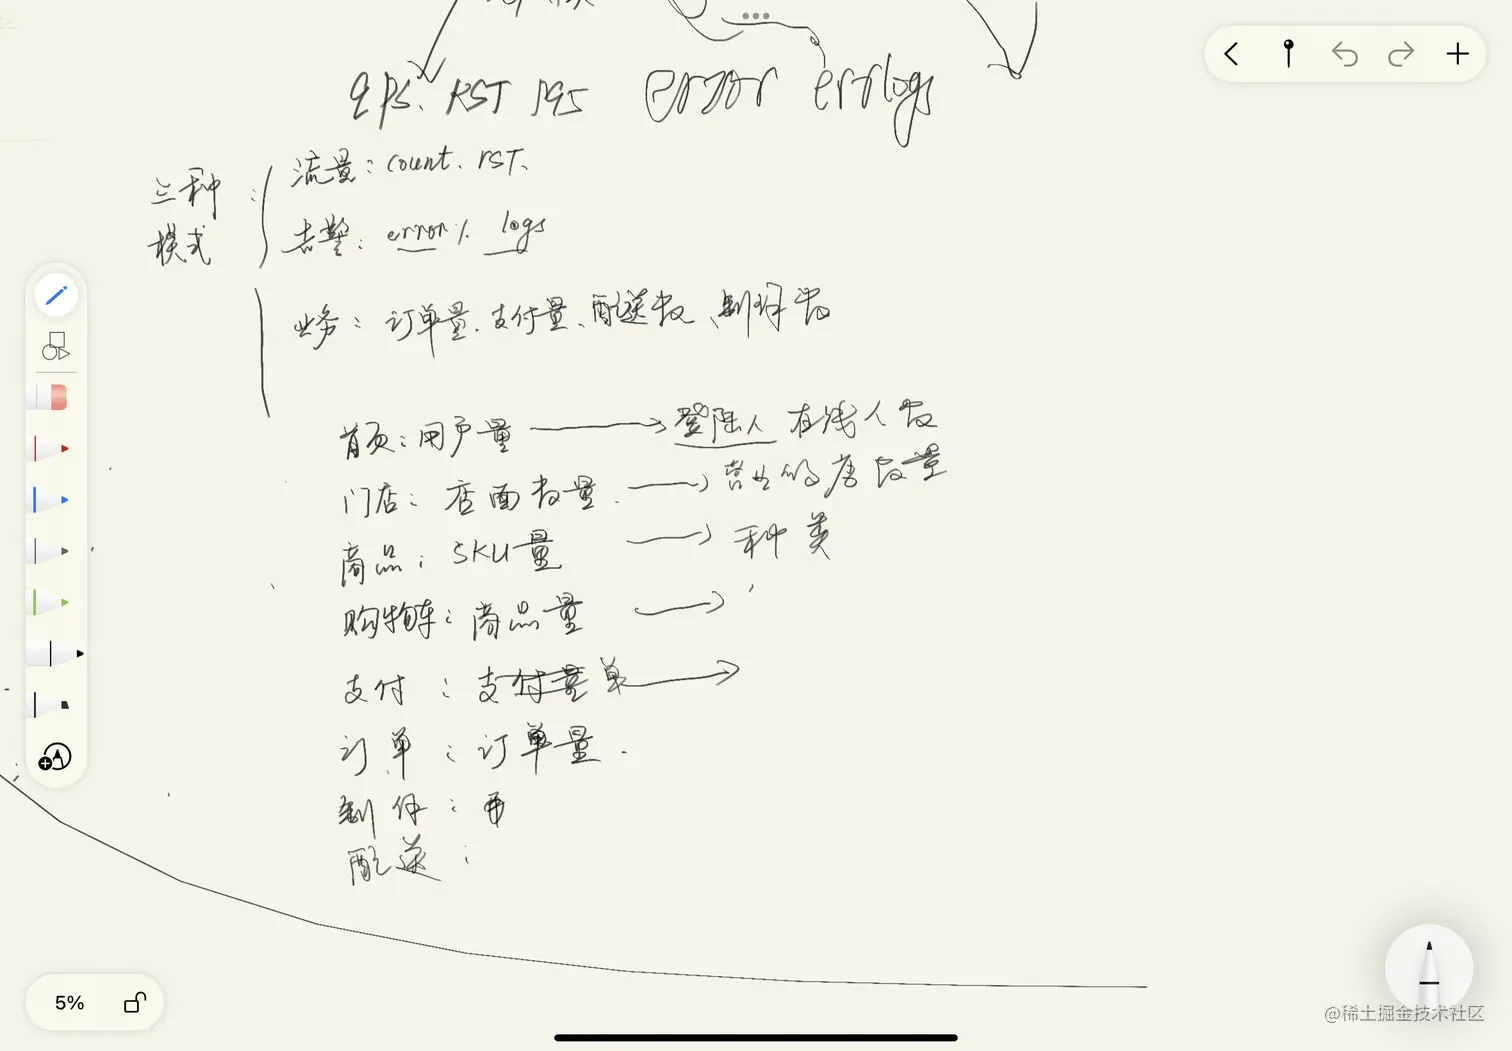 qps. RST p95 error errlogs
三种模式:
流量: count、RST、
告警: error% logs
业务: 订单量、支付量、配送数、制作数
首页: 用户量 → 登陆人 在线人数
门店: 店面数量. → 营业的店数量
商品: SKU量 → 种类
购物车: 商品量 →
支付: 支付量单 →
订单: 订单量.
制作:
配送:
5%
@稀土掘金技术社区